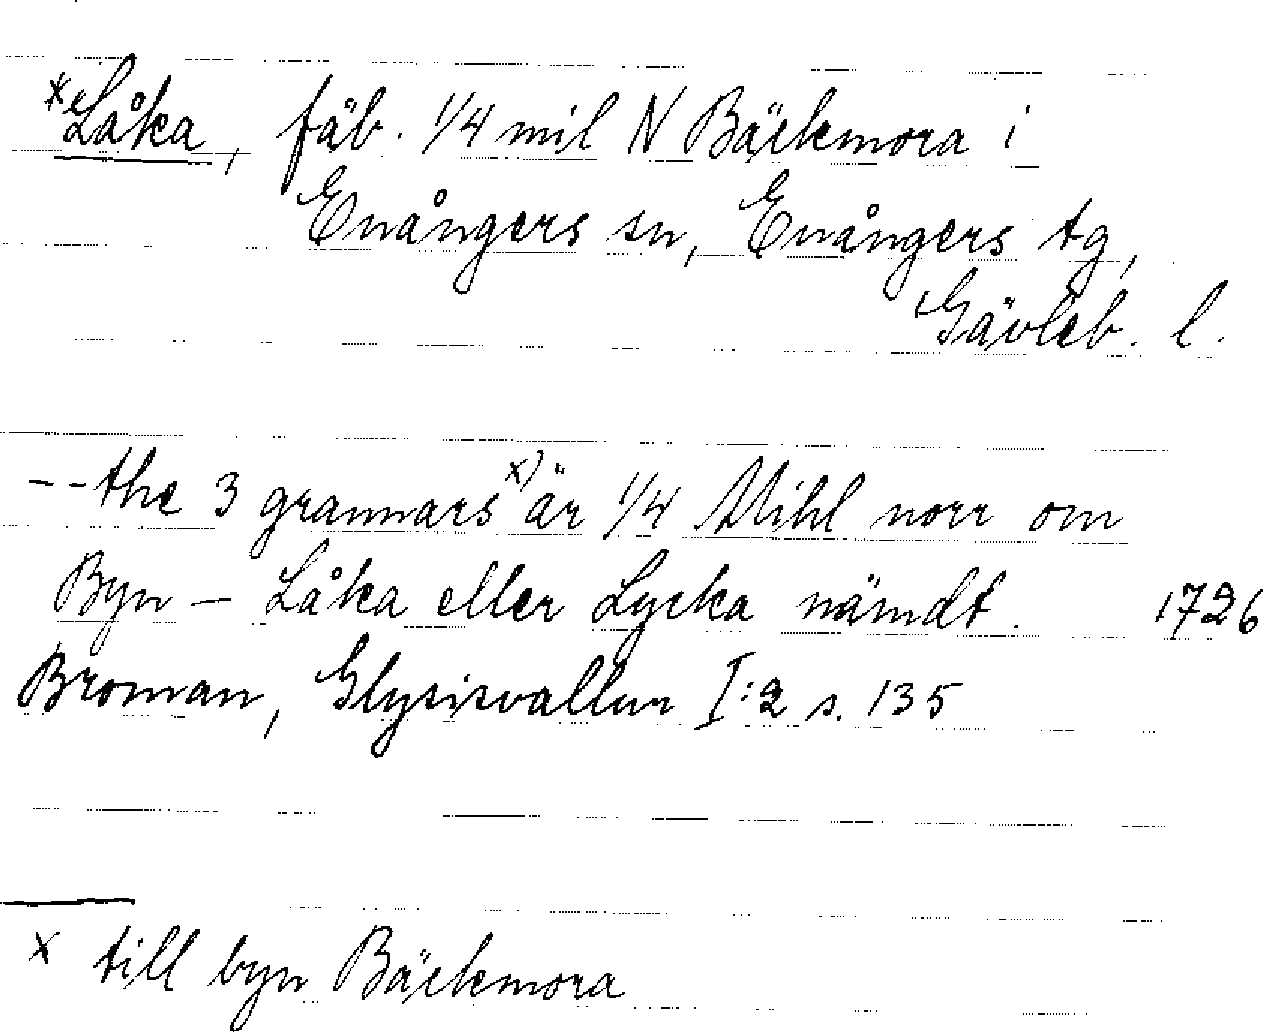 *Låka, fäb. 1/4 mil N Bäckmora i
Enångers sn, Enångers tg,
Gävleb. l.
--the 3 grannars x) är 1/4 Mihl norr om
Byn – Låka eller Lycka nämdt. 1726
Broman, Glysisvallur I:2 s. 135
x till byn Bäckmora